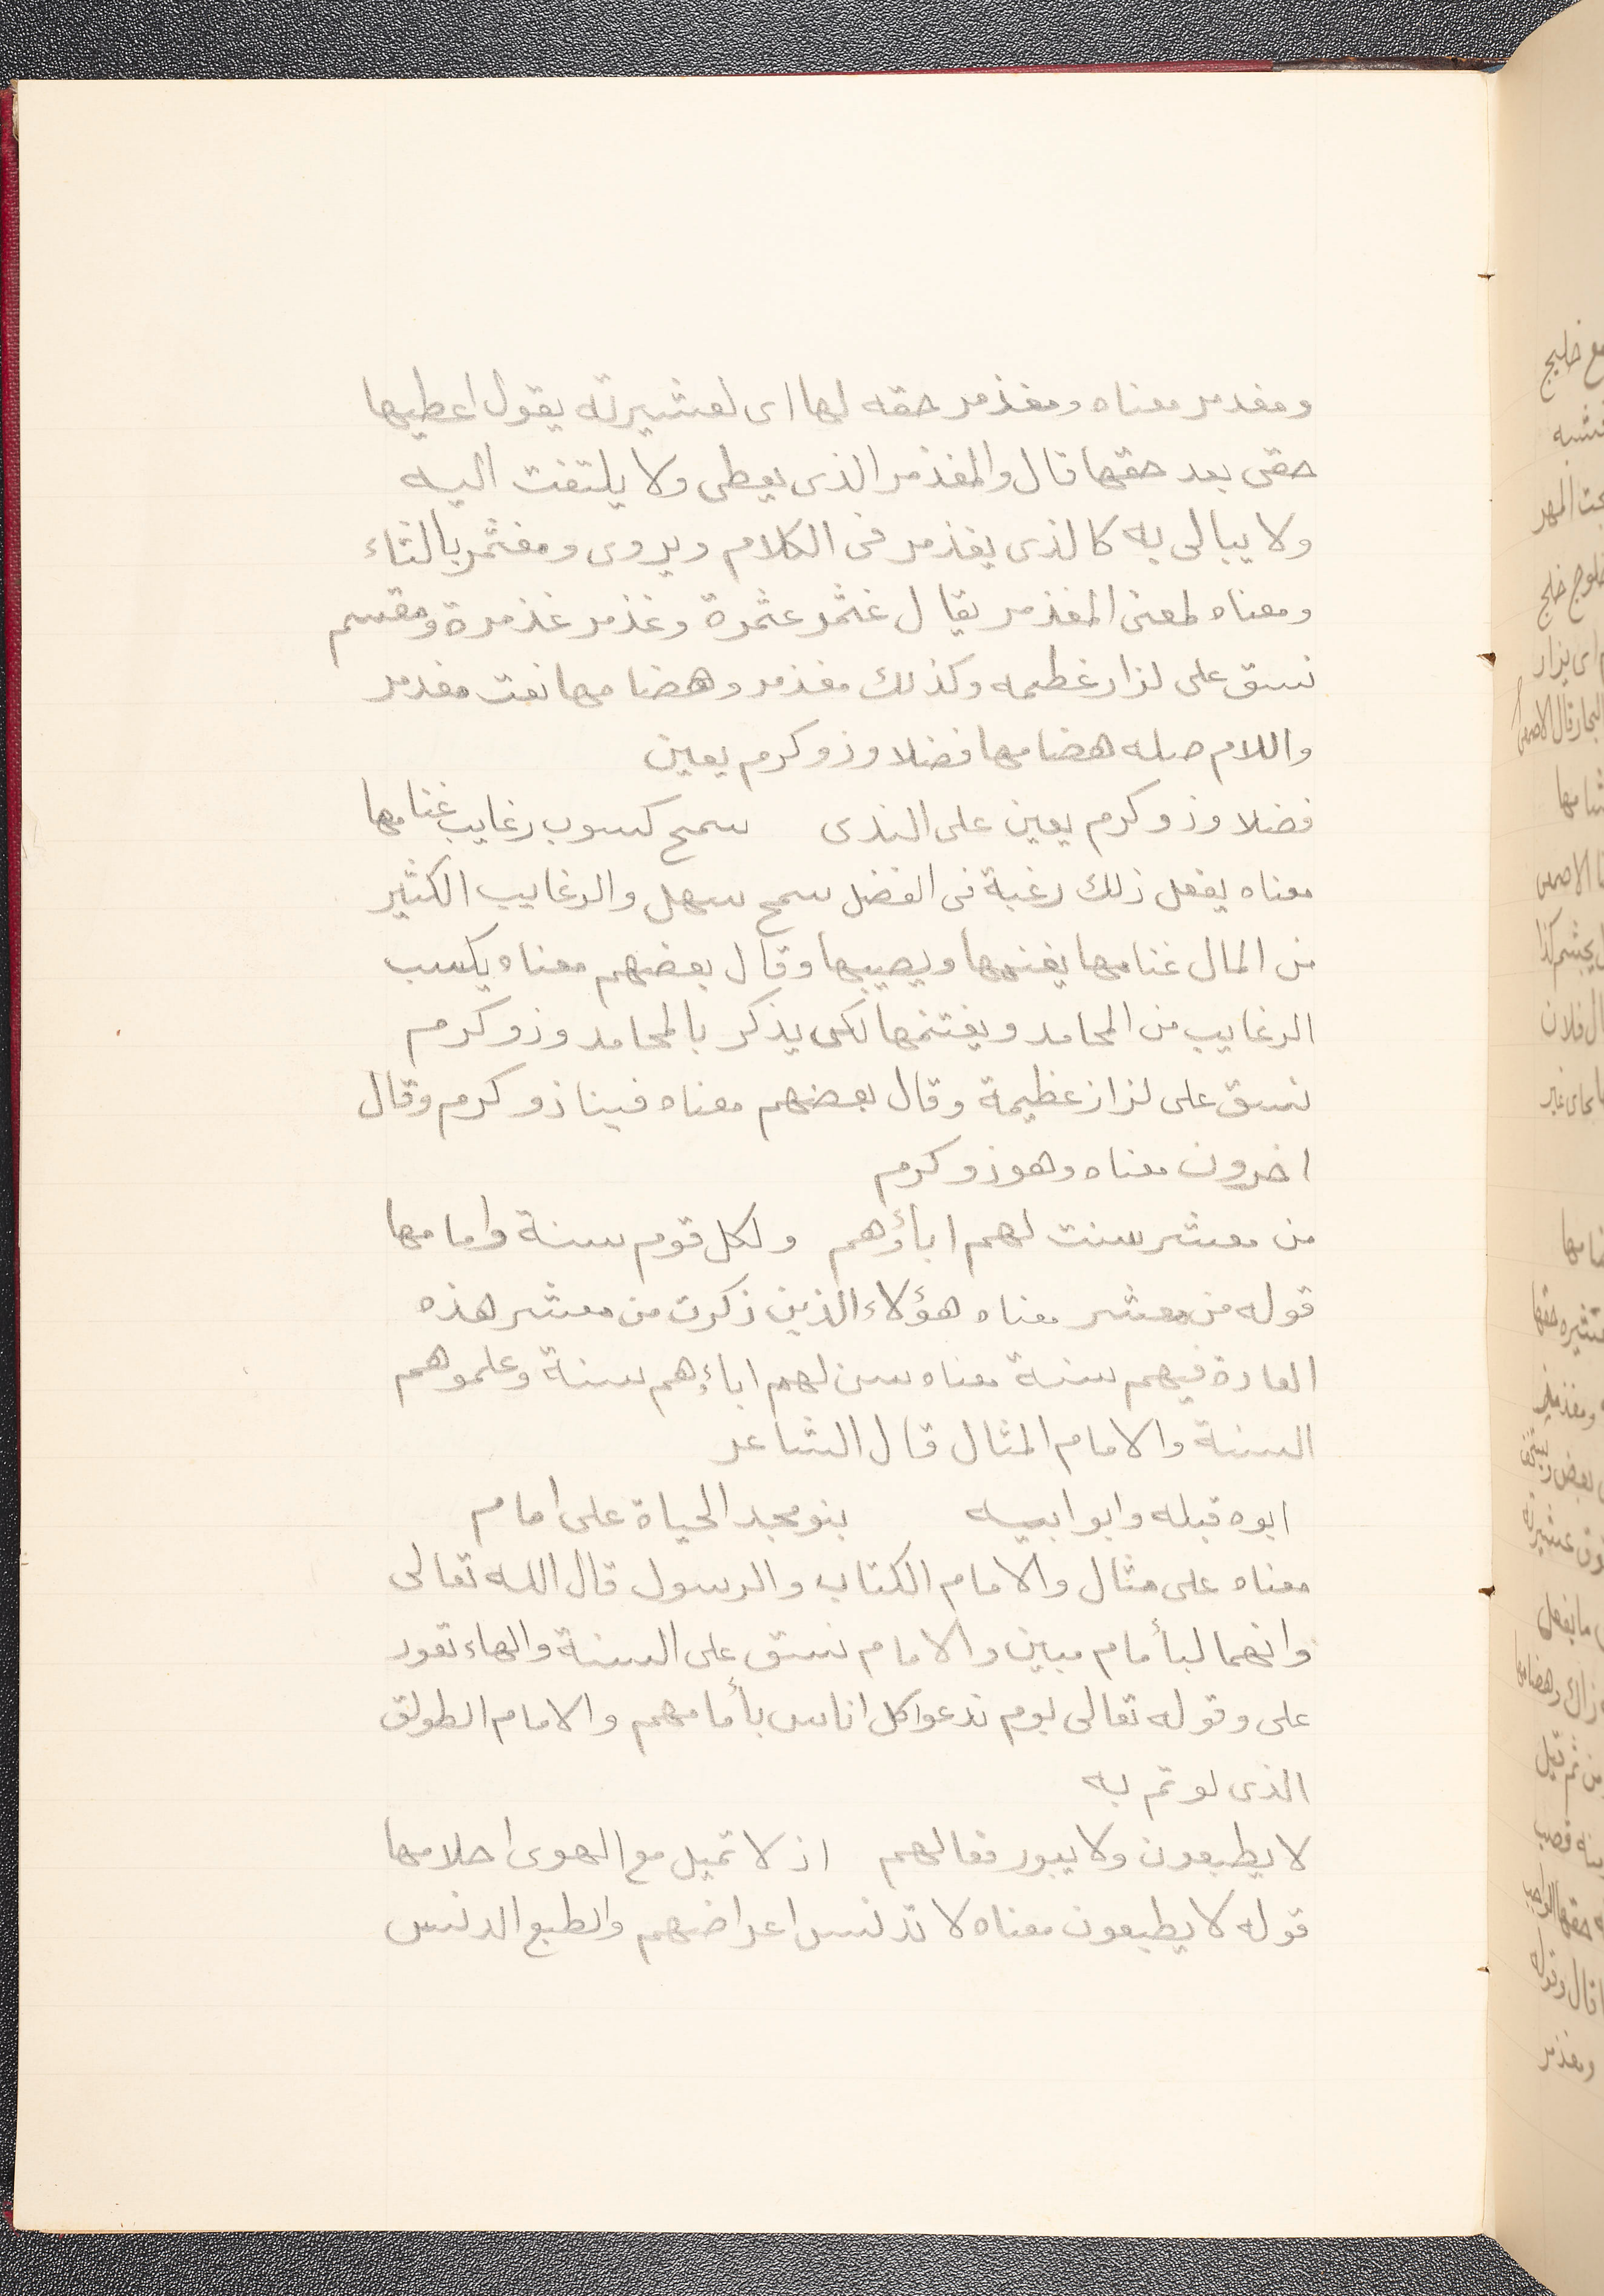 ومغدمر معناه ومغذمر حقه لها اى لعشيرته يقول اعطيها
حقى بعد حقها قال والمغذمر الذى يعطى ولا يلتفت اليه
ولا يبالى به كالذى يغذمر فى الكلام ويروى ومغثمر بالثاء
ومعناه لمعنى المغذمر يقال غثمر عثمرة وغذمر غذمرة ومقسم
نسق على لزار غطيمه وكذلك مغذمر وهضامها نعت مغدمر
واللام صله هضامها فضلا وذو كرم يعين
فضلا وذو كرم يعين على الندى سمح كسوب رغايب غنامها
معناه يفعل ذلك رغبة فى الفضل سمح سهل والرغايب الكثير
من المال غنامها يغنمها ويصيبها وقال بعضهم معناه يكسب
الرغايب من المحامد ويغتنمها لكى يذكر بالمحامد وذو كرم
نسق على لزاز عظيمة وقال بعضهم معناه فينا ذو كرم وقال
اخرون معناه وهو ذو كرم
من معشر سنت لهم اباؤهم ولكل قوم سنة وامامها
قوله من معشر معناه هؤلاء الذين ذكرت من معشر هذه
العادة فيهم سنة معناه سن لهم اباءهم سنة وعلموهم
السنة والامام المثال قال الشاعر
ابوه قبله وابو ابيه بنو مجد الحياة على امام
معناه على مثال والامام الكتاب والرسول قال الله تعالى
وانهما لبأمام مبين والامام نسق على السنة والهاء تعود
على وقوله تعالى يوم ندعوا كل اناس بأمامهم والامام الطولق
الذى لوتم به
لا يطبعون ولا يبور فعالهم اذ لا تميل مع الهوى احلامها
قوله لا يطبعون معناه لا تدنس اعراضهم والطبع الدنس